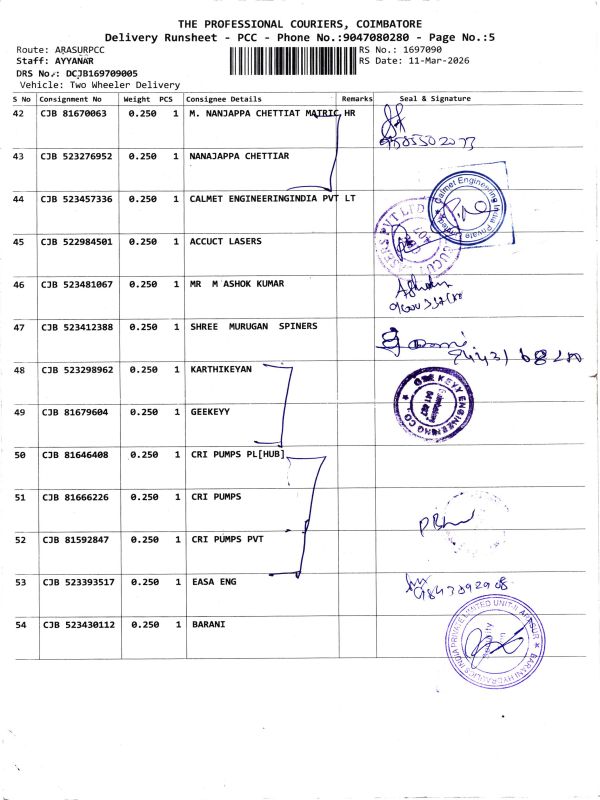 THE PROFESSIONAL COURIERS, COIMBATORE
Delivery Runsheet - PCC - Phone No.:9047080280 - Page No.:5
Route: ARASURPCC RS No.: 1697090
Staff: AYYANAR RS Date: 11-Mar-2026
DRS No.: DCJB169709005
Vehicle: Two Wheeler Delivery
S No Consignment No Weight PCS Consignee Details Remarks Seal & Signature
42 CJB 81670063 0.250 1 M. NANJAPPA CHETTIAT MATRIC HR
43 CJB 523276952 0.250 1 NANAJAPPA CHETTIAR
44 CJB 523457336 0.250 1 CALMET ENGINEERINGINDIA PVT LT
Calmet Engineering India Private Limited
45 CJB 522984501 0.250 1 ACCUCT LASERS
46 CJB 523481067 0.250 1 MR M ASHOK KUMAR
47 CJB 523412388 0.250 1 SHREE MURUGAN SPINERS
48 CJB 523298962 0.250 1 KARTHIKEYAN
49 CJB 81679604 0.250 1 GEEKEYY
50 CJB 81646408 0.250 1 CRI PUMPS PL[HUB]
51 CJB 81666226 0.250 1 CRI PUMPS
52 CJB 81592847 0.250 1 CRI PUMPS PVT
53 CJB 523393517 0.250 1 EASA ENG
9843092908
54 CJB 523430112 0.250 1 BARANI